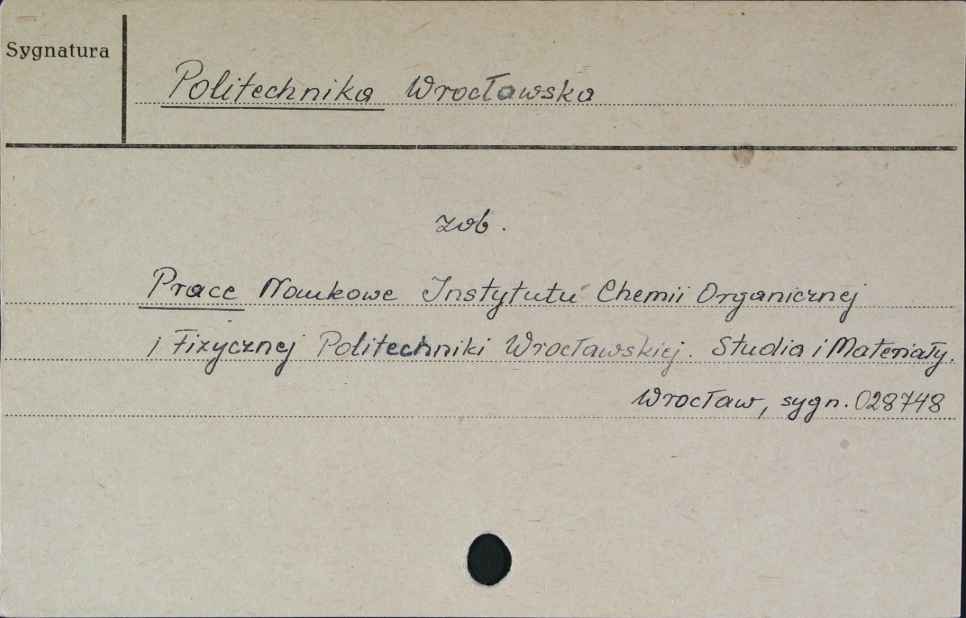 Sygnatura
Politechnika Wrocławska
zob.
Prace Naukowe Instytutu Chemii Organicznej
i Fizycznej Politechniki Wrocławskiej. Studia i Materiały.
Wrocław, sygn. 028748